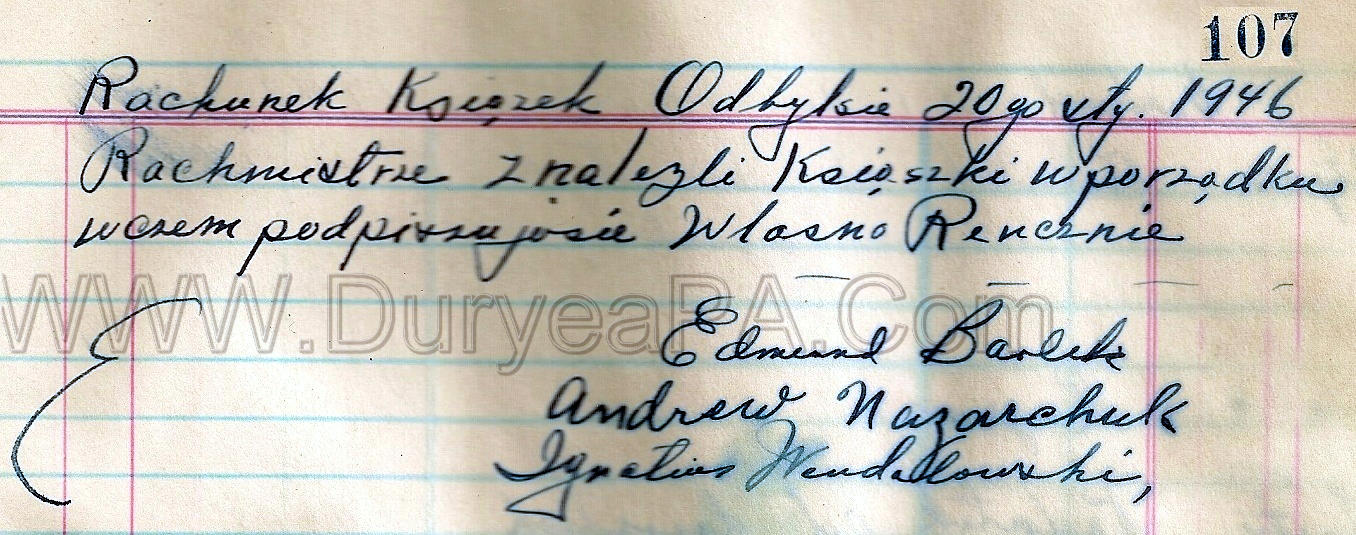 107
Rachunek Ksiązek Odbylsie 20go sty. 1946
Rachmistrze znalezli Ksiąszki w porządku
wczem podpiszujosie Wlasno Rencznie
WWW.DuryeaPA.Com
Edmund Barlek
Andrew Nazarchuk
Ignatius